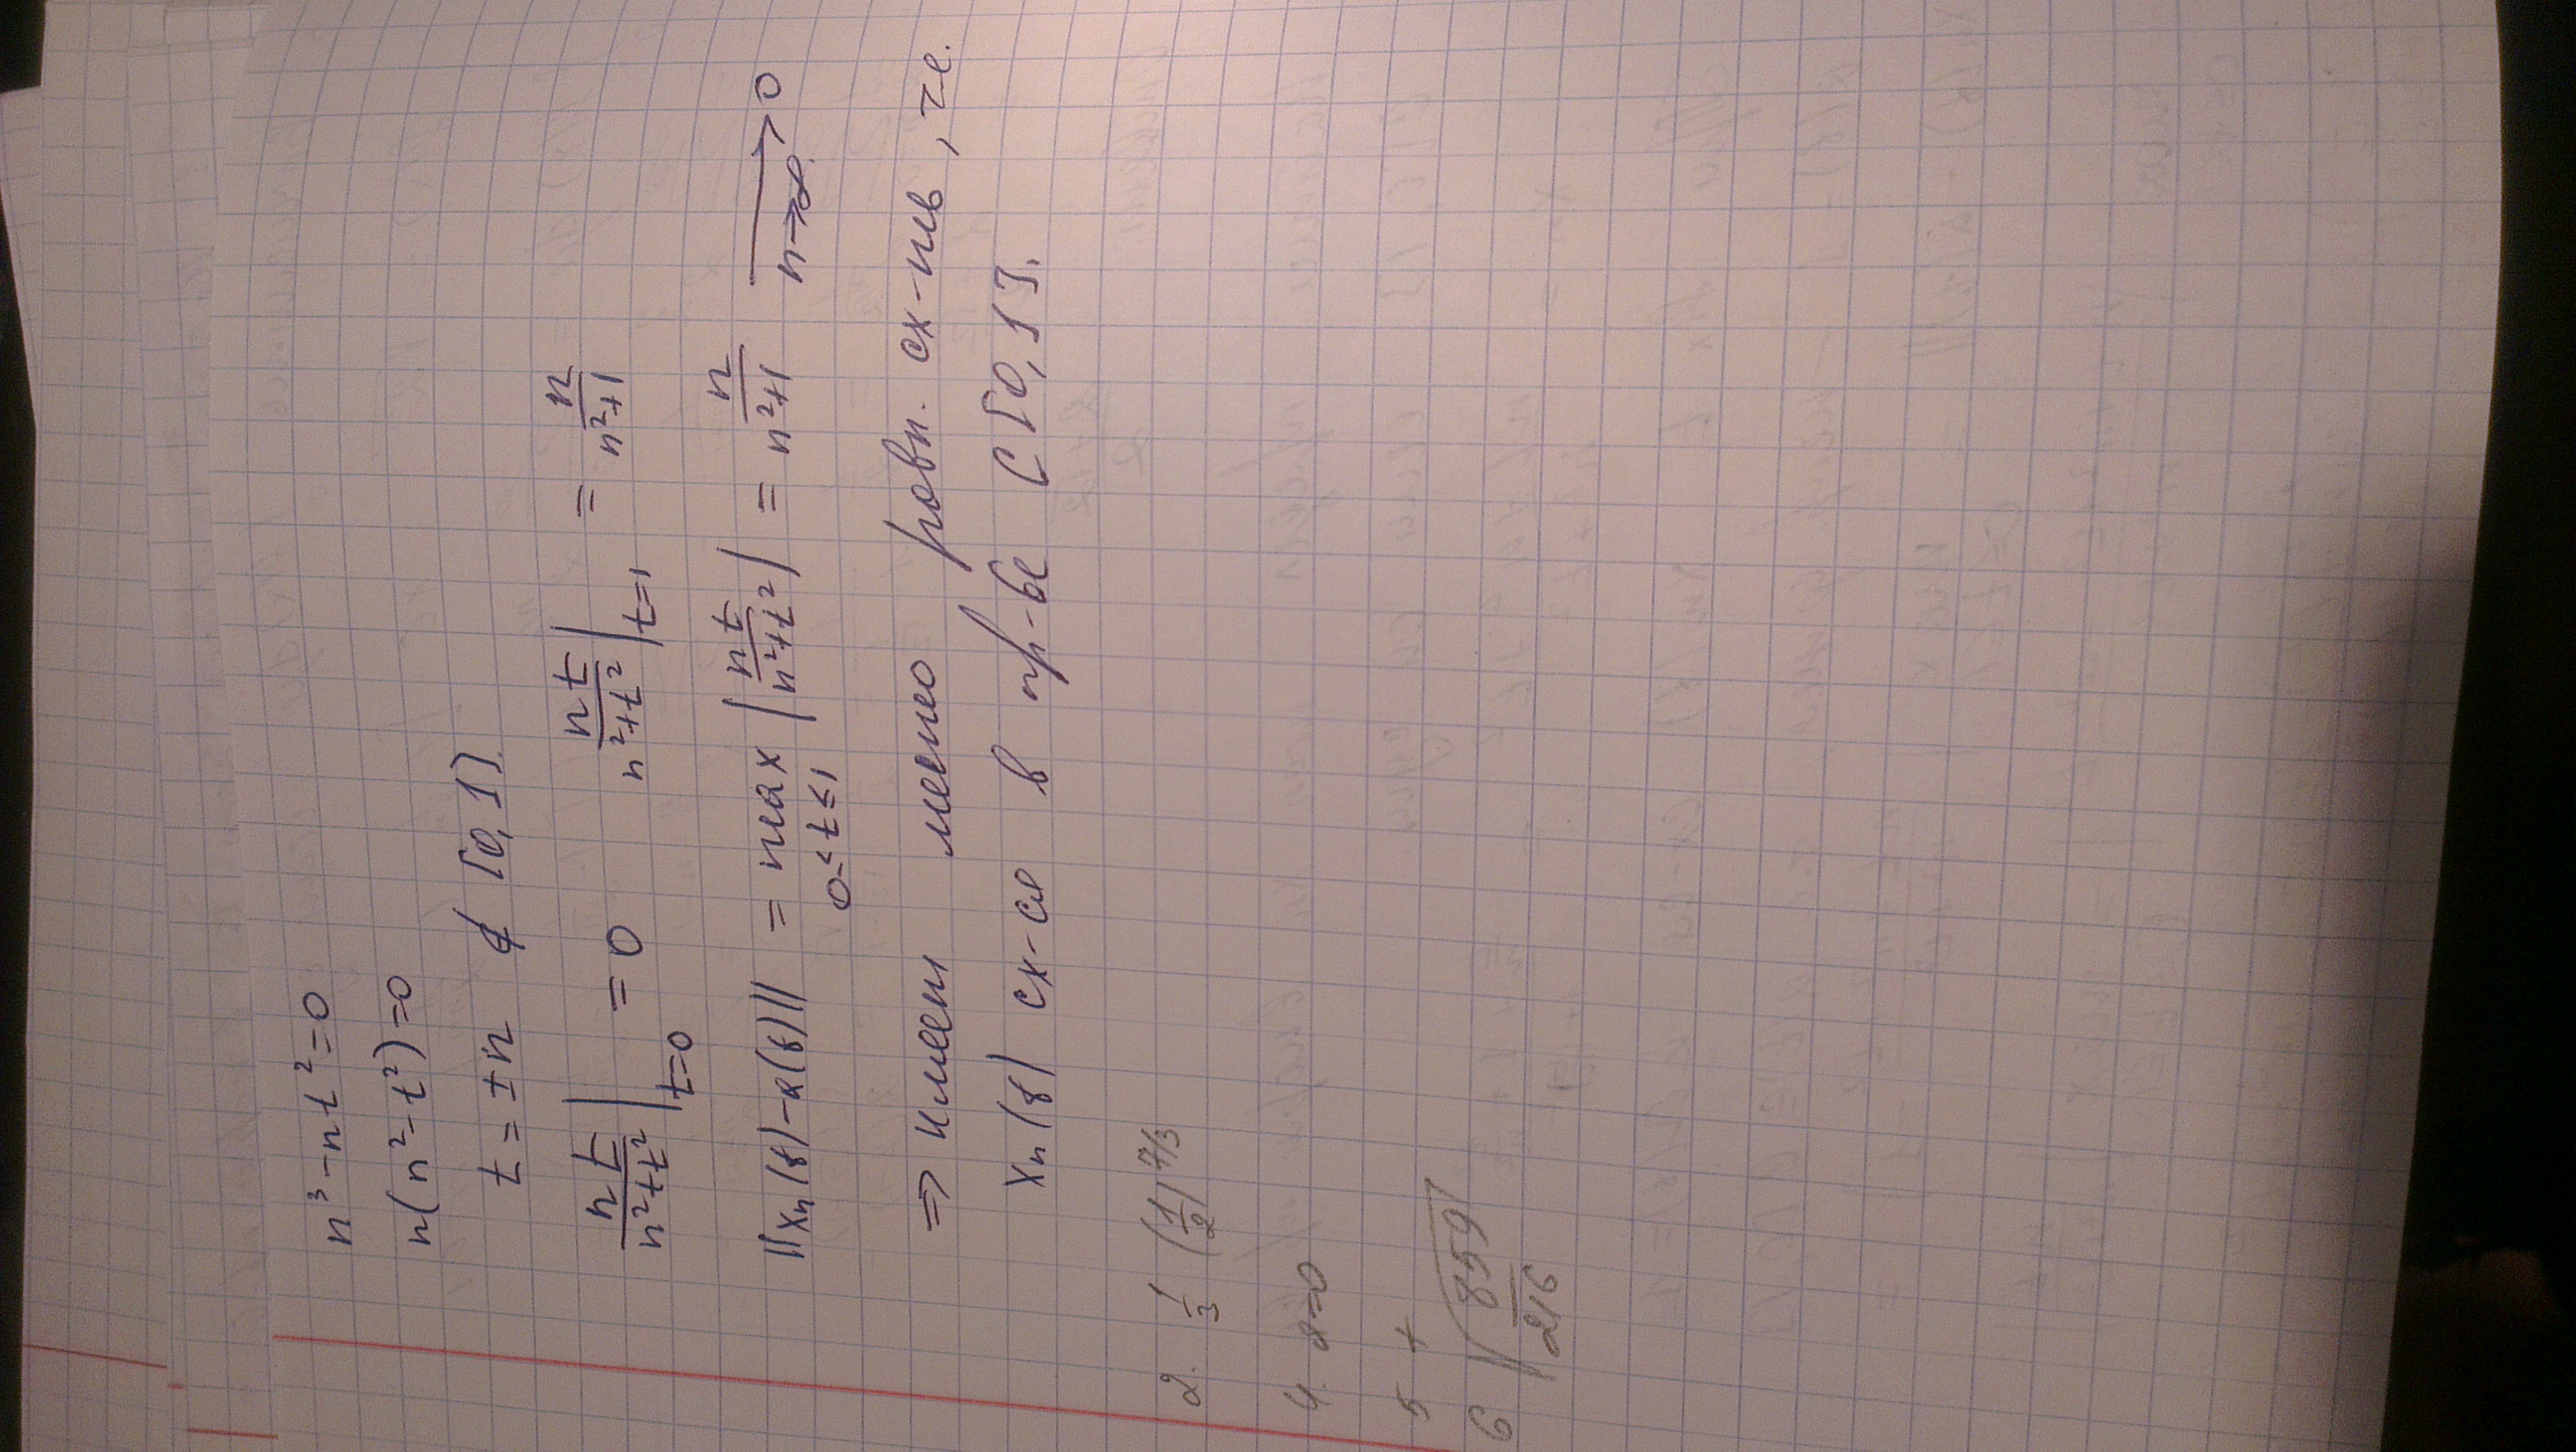 n³ − nt² = 0
n(n² − t²) = 0
t = ± n ∉ [0, 1]
nt/(n²+t²) |t=0 = 0   nt/(n²+t²) |t=1 = n/(n²+1)
||xn(t) − a(t)|| = max 0≤t≤1 |nt/(n²+t²)| = n/(n²+1) → n→∞ 0
⇒ имеем место равн. сх-ть, т.е.
xn(t) сх-ся в пр-ве C[0,1].
2. 1/3 (1/2)^
4. a=0
5 +
6 √(859/216)